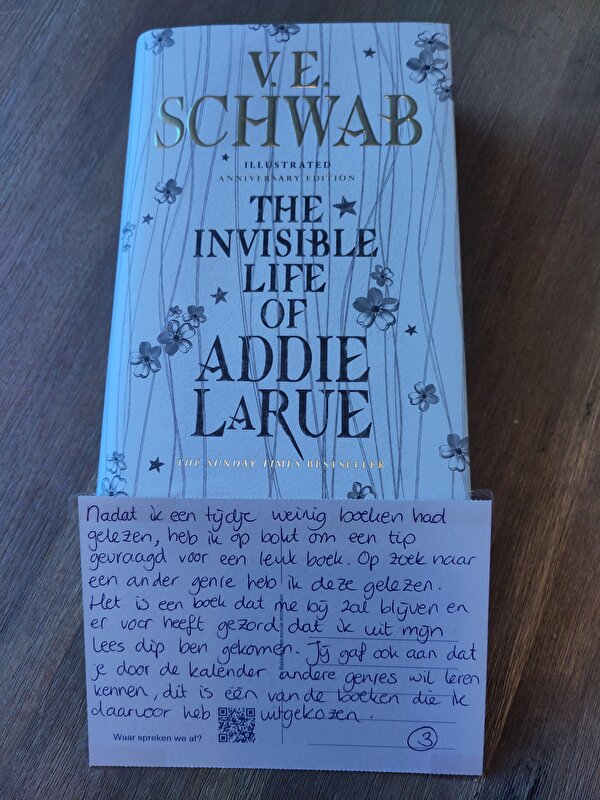 V. E.
SCHWAB
ILLUSTRATED
ANNIVERSARY EDITION
THE
INVISIBLE
LIFE
OF
ADDIE
LARUE
THE SUNDAY TIMES BESTSELLER
Nadat ik een tijdje weinig boeken had
gelezen, heb ik op bokt om een tip
gevraagd voor een leuk boek. Op zoek naar
een ander genre heb ik deze gelezen.
Het is een boek dat me bij zal blijven en
er voor heeft gezord dat ik uit mijn
lees dip ben gekomen. Jij gaf ook aan dat
je door de kalender andere genres wil leren
kennen, dit is één van de boeken die ik
daarvoor heb uitgekozen.
Waar spreken we af?
3